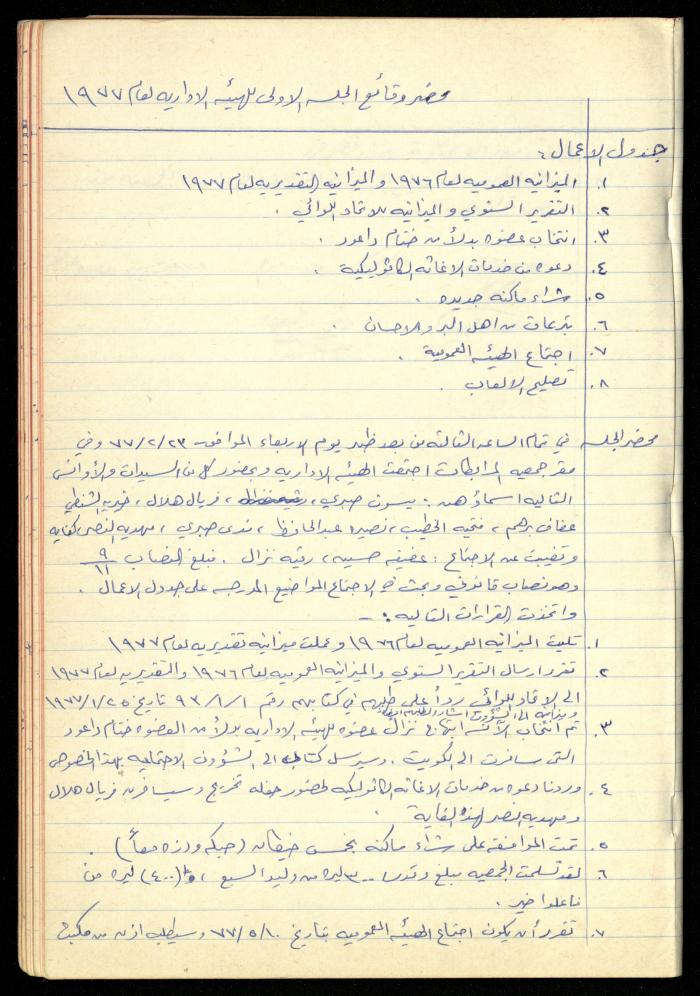 محضر وقائع الجلسه الاولى للهيئه الاداريه لعام ١٩٧٧
جدول الاعمال :
١. الميزانيه العموميه لعام ١٩٧٦ والميزانيه التقديريه لعام ١٩٧٧
٢. التقرير السنوي والميزانيه للاتحاد اللوائي .
٣. انتخاب عضوه بدلاً من ختام داعود .
٤. دعوه من خدمات الاغاثه الكاثوليكية .
٥. شراء ماكنه جديده .
٦. تبرعات من اهل البر والاحسان .
٧. اجتماع الهيئه العمومية .
٨. تصليح الالعاب .
محضر الجلسه في تمام الساعه الثالثه من بعد ظهر يوم الاربعاء الموافق ٧٧/٢/٢٣ وفي
مقر جمعيه المرابطات اجتمعت الهيئه الاداريه وبحضور كل من السيدات والأوانس
التاليه اسماؤهن : يسرى صبري ، فريال هلال ، خيريه الشنطي
عفاف برهم ، فتحيه الخطيب ، نصيره عبدالحافظ ، ندى صبري ، مهديه النصر ، كفايه
وتغيبت عن الاجتماع : عفيفه حسيبه ، رقيه نزال . فبلغ النصاب ٩/١١
وهو نصاب قانوني وبحث في الاجتماع المواضيع المدرجه على جدول الاعمال .
واتخذت القرارات التاليه : -
١. تليت الميزانيه العموميه لعام ١٩٧٦ وعملت ميزانيه تقديريه لعام ١٩٧٧
٢. تقرر ارسال التقرير السنوي والميزانيه العموميه لعام ١٩٧٦ والتقديريه لعام ١٩٧٧
الى الاتحاد اللوائي رداً على طلبهم في كتابهم رقم ٩٣/١/١ تاريخ ١٩٧٧/١/٢٥
وميزانيه الى الشؤون
٣. تم انتخاب الآنسه ابتهاج نزال عضوه للهيئه الاداريه بدلاً من العضوه ختام داعود
التي سافرت الى الكويت . وسيرسل كتاب الى الشؤون الاجتماعيه بهذا الخصوص
٤. وردنا دعوه من خدمات الاغاثه الكاثوليكيه لحضور حفله تخريج وسيسافرن فريال هلال
ومهديه النصر لهذه الغاية .
٥. تمت الموافقه على شراء ماكنه بخمس خيطان (حبكه ودرزه معاً) .
٦. لقد تسلمت الجمعيه مبلغ وقدره ٣٠٠ ليره من وليد السبع ، و (٤٠٠) ليره من
فاعلوا خير .
٧. تقرر أن يكون اجتماع الهيئه العموميه بتاريخ ٧٧/٥/١٠ وسيطلب اذن من مكتب